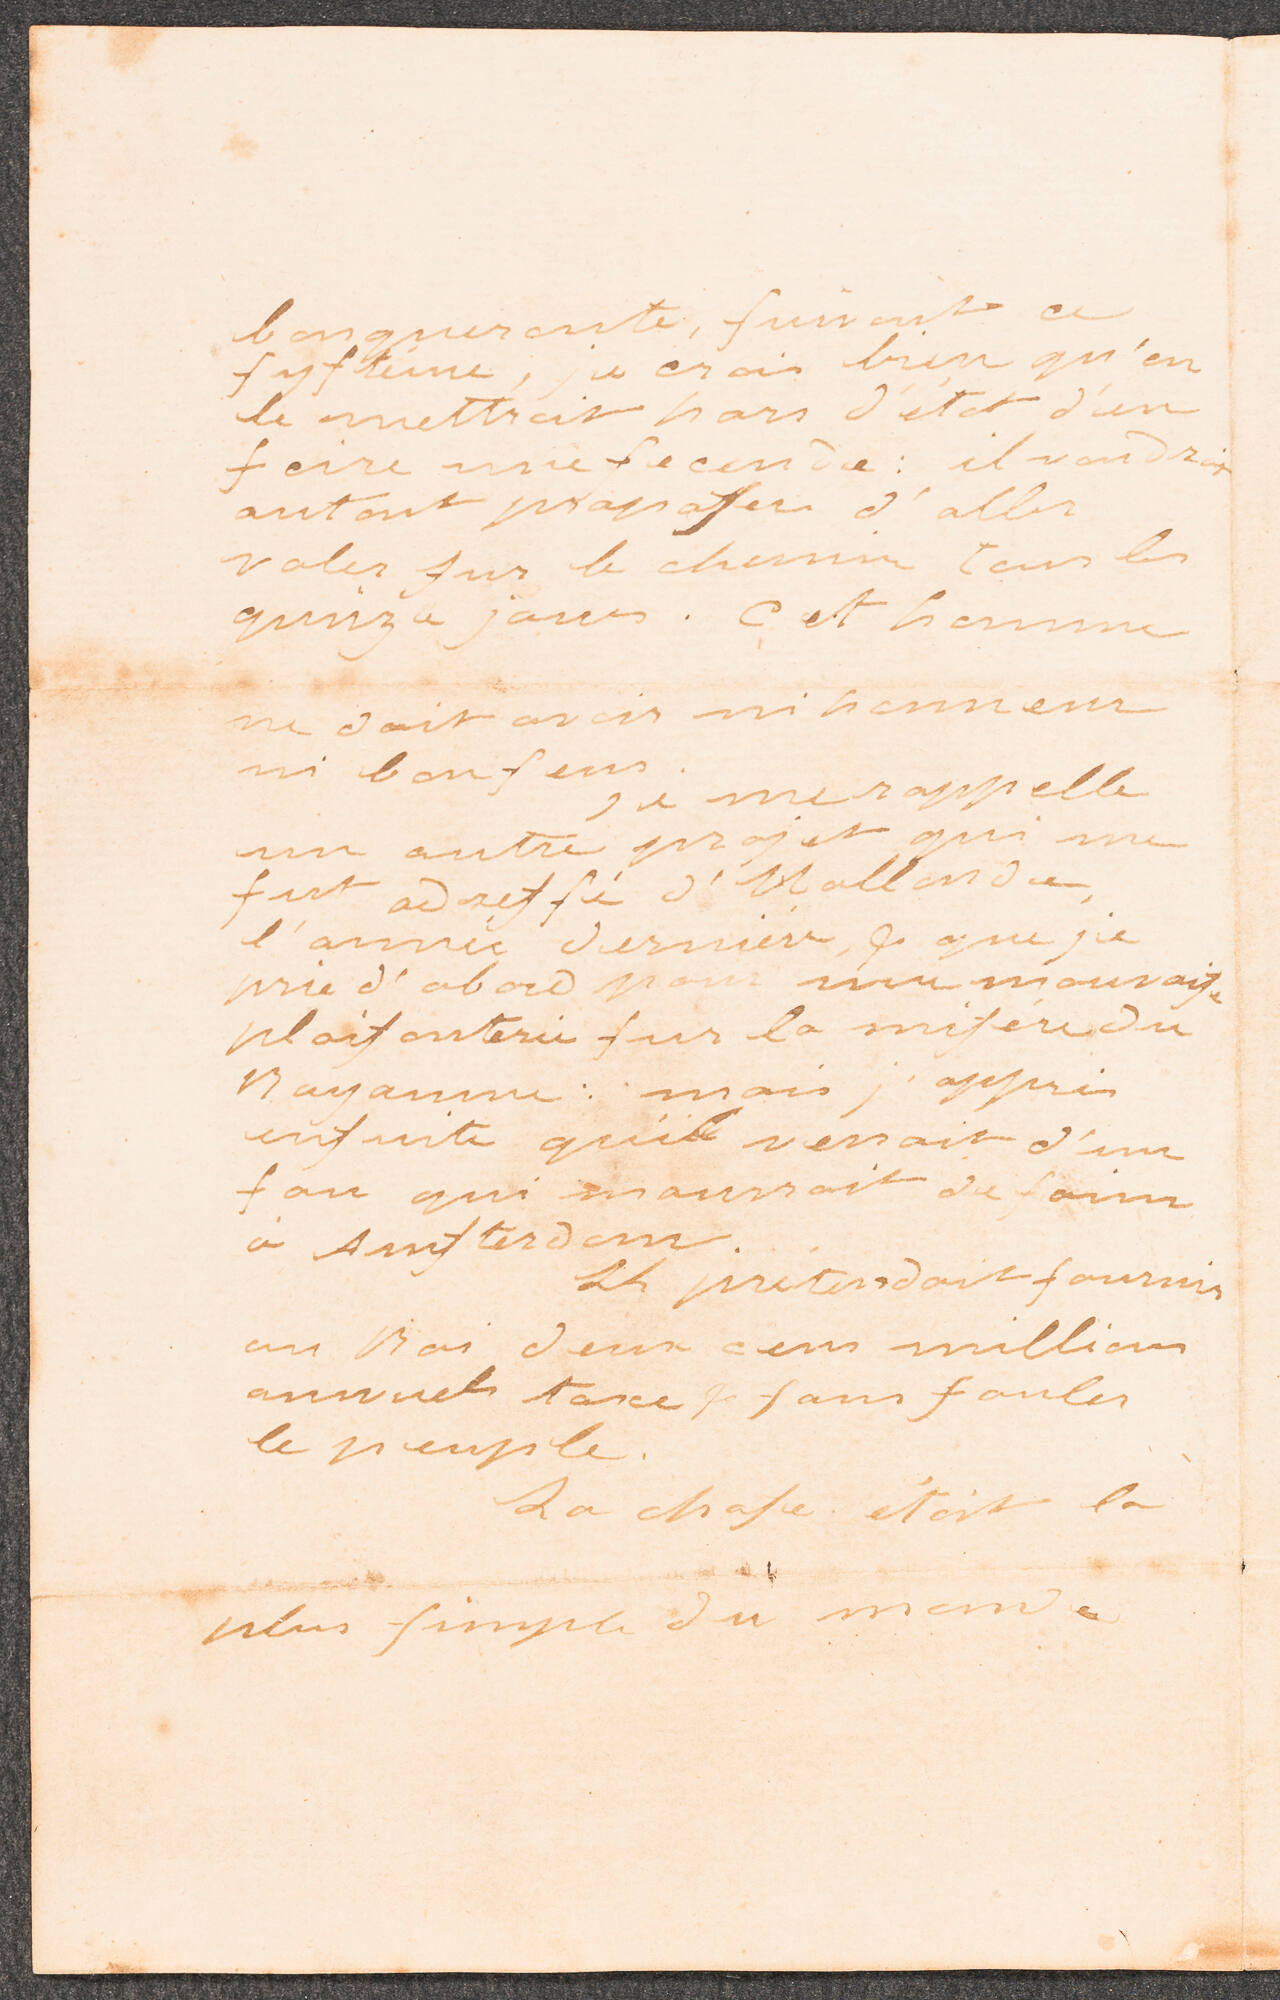 banqueroute, suivant ce
systéme, je crois bien qu'on
le mettroit hors d'état d'en
faire une seconde : il vaudroit
autant proposer d'aller
voler sur le chemin tous les
quinze jours. Cet homme
ne doit avoir ni honneur
ni bon sens.
Je me rappelle
un autre projet qui me
fut adressé d'Hollande,
l'année derniére, & que je
pris d'abord pour une mauvaise
plaisanterie sur la misére du
Royaume : mais j'appris
ensuite qu'il venoit d'un
fou qui mourroit de faim
à Amsterdam.
Il prétendoit fournir
au Roi deux cens millions
annuels taxe & sans fouler
le peuple.
La chose étoit la
plus simple du monde